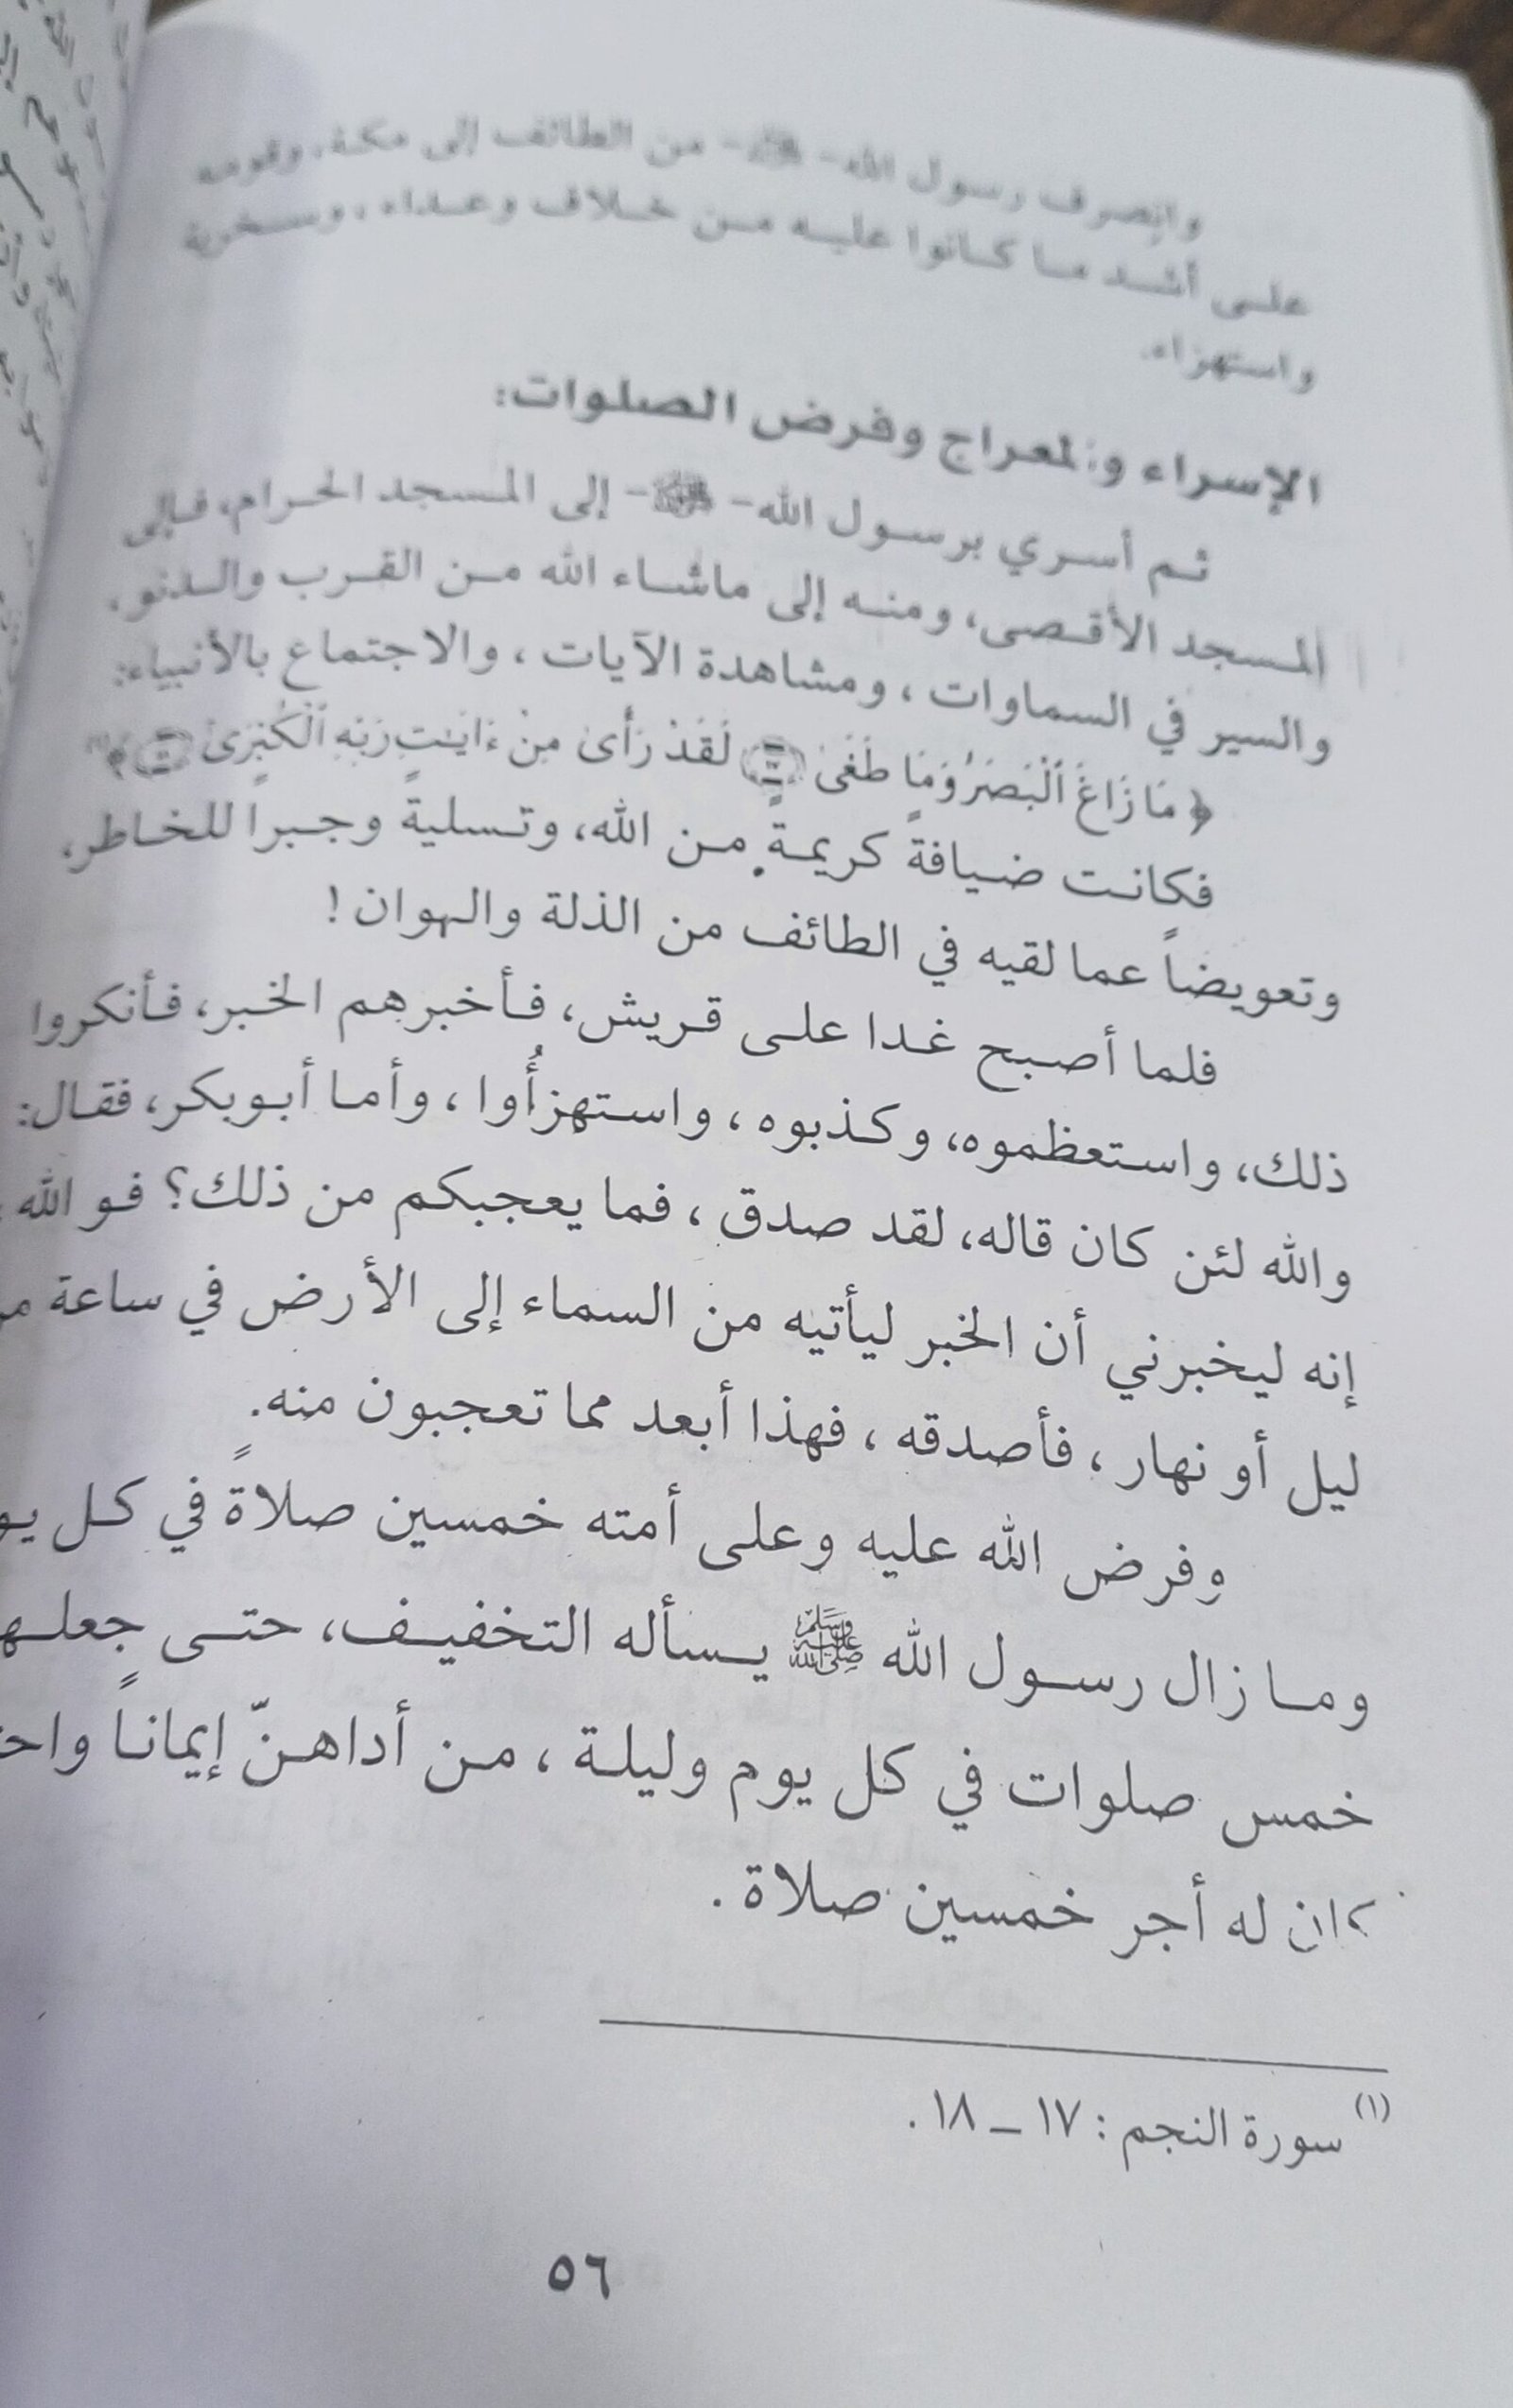 وانصرف رسول الله- ﷺ - من الطائف إلى مكة، وقومه
على أشد ما كانوا عليه من خلاف وعداء، وسخرية
واستهزاء.
الإسراء والمعراج وفرض الصلوات:
ثم أسري برسول الله- ﷺ - إلى المسجد الحرام، فإلى
المسجد الأقصى، ومنه إلى ماشاء الله من القرب والدنو،
والسير في السماوات، ومشاهدة الآيات، والاجتماع بالأنبياء:
﴿ مَا زَاغَ ٱلْبَصَرُ وَمَا طَغَىٰ ﴿١٧﴾ لَقَدْ رَأَىٰ مِنْ ءَايَٰتِ رَبِّهِ ٱلْكُبْرَىٰٓ ﴿١٨﴾ ﴾(١)
فكانت ضيافةً كريمةً من الله، وتسليةً وجبراً للخاطر،
وتعويضاً عما لقيه في الطائف من الذلة والهوان !
فلما أصبح غدا على قريش، فأخبرهم الخبر، فأنكروا
ذلك، واستعظموه، وكذبوه، واستهزأُوا، وأما أبوبكر، فقال:
والله لئن كان قاله، لقد صدق، فما يعجبكم من ذلك؟ فو الله
إنه ليخبرني أن الخبر ليأتيه من السماء إلى الأرض في ساعة
ليل أو نهار، فأصدقه، فهذا أبعد مما تعجبون منه.
وفرض الله عليه وعلى أمته خمسين صلاةً في كل
وما زال رسول الله ﷺ يسأله التخفيف، حتى جعلها
خمس صلوات في كل يوم وليلة، من أداهنّ إيماناً
كان له أجر خمسين صلاة .
(١) سورة النجم : ١٧ – ١٨ .
٥٦